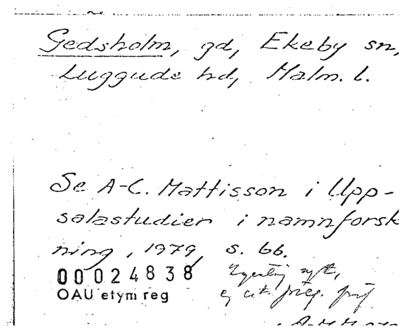 Gedsholm, gd, Ekeby sn,
Luggude hd, Malm. l.
Se A-C. Mattisson i Upp-
salastudier i namnforsk
ning, 1979, s. 66.
00024838
OAU etym reg